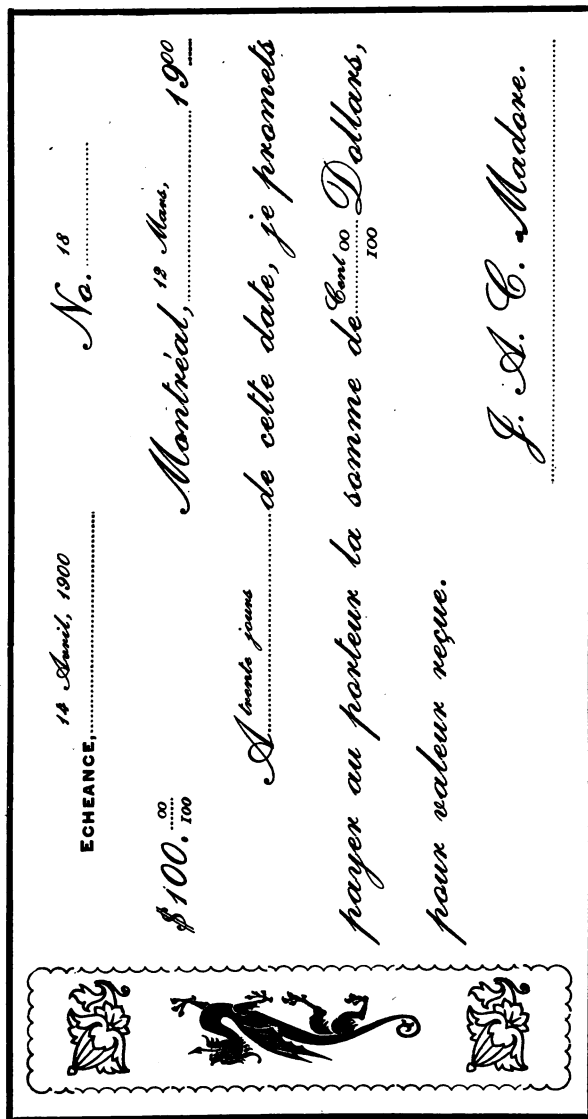 ECHEANCE, 14 Avril, 1900 No. 18
$100. 00/100 Montréal, 12 Mars, 1900
A trente jours de cette date, je promets
payer au porteur la somme de Cent 00/100 Dollars,
pour valeur reçue.
J. A. C. Madore.